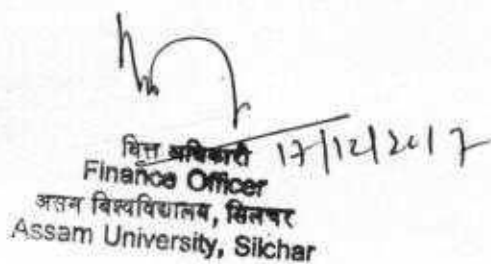 वित्त अधिकारी 17/12/2017
Finance Officer
असम विश्वविद्यालय, सिलचर
Assam University, Silchar